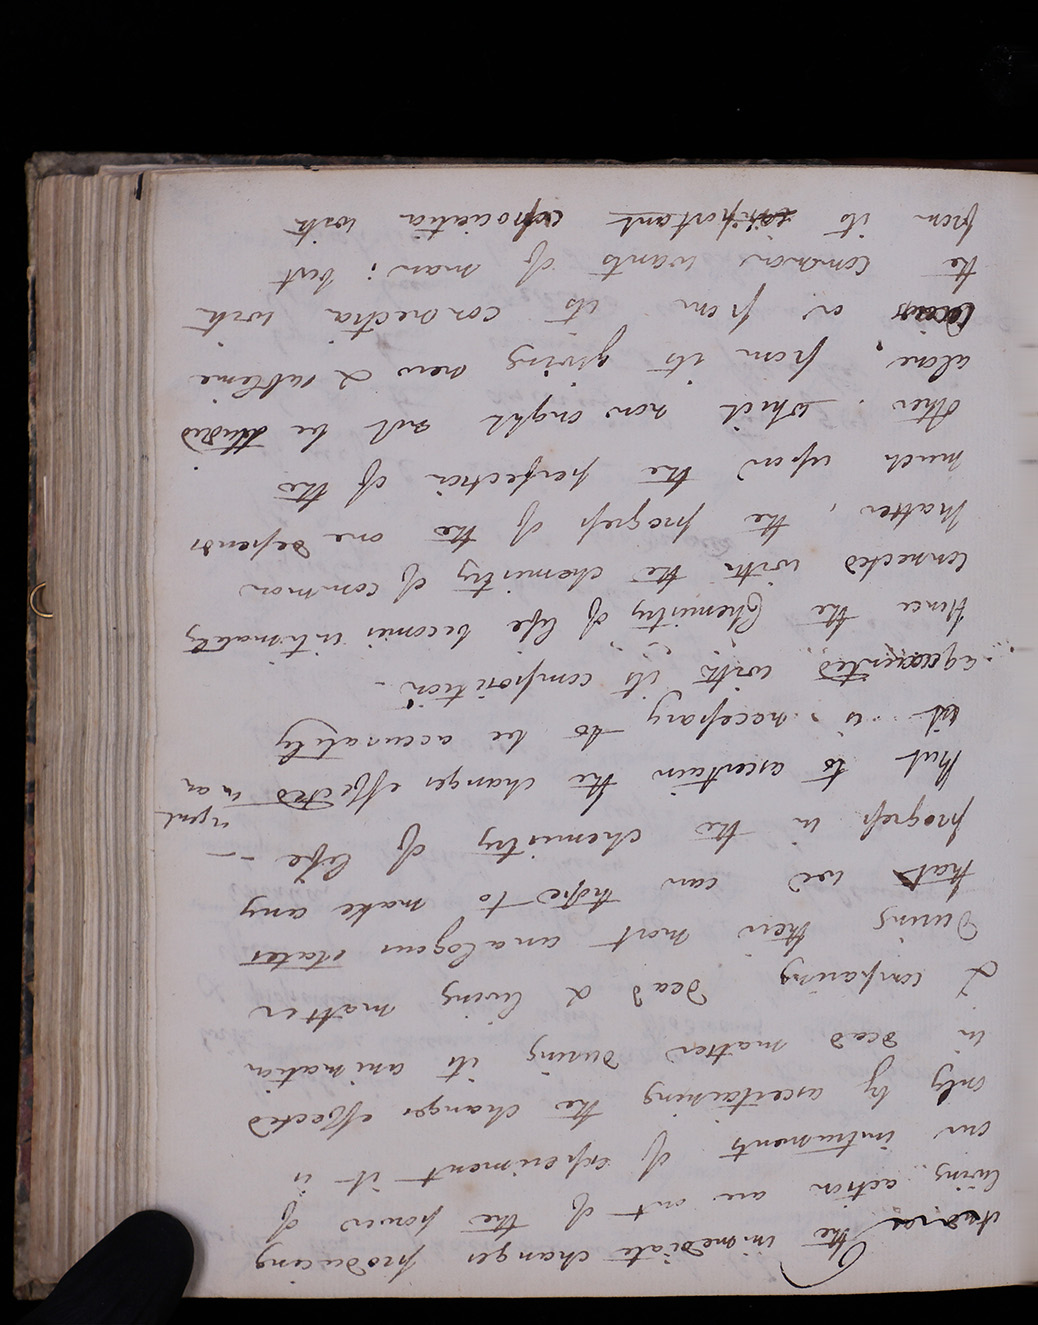 the immediate changes producing
living action are out of the power of
our instruments of experiment it is
only by ascertaining the changes effected
in dead matter during its animation
& comparing dead & living matter
During their most analogous states
that we can hope to make any
progress in the chemistry of life —
But to ascertain the changes effected in an agent
it is necessary to be accurately
acquainted with its composition –
Hence the Chemistry of life becomes intimately
connected with the chemistry of common
matter, the progress of the one depends
much upon the perfection of the
other. which now ought not be studied
alone, from its giving new & sublime
Ideas or from its connection with
the common wants of man; but
from its important association with